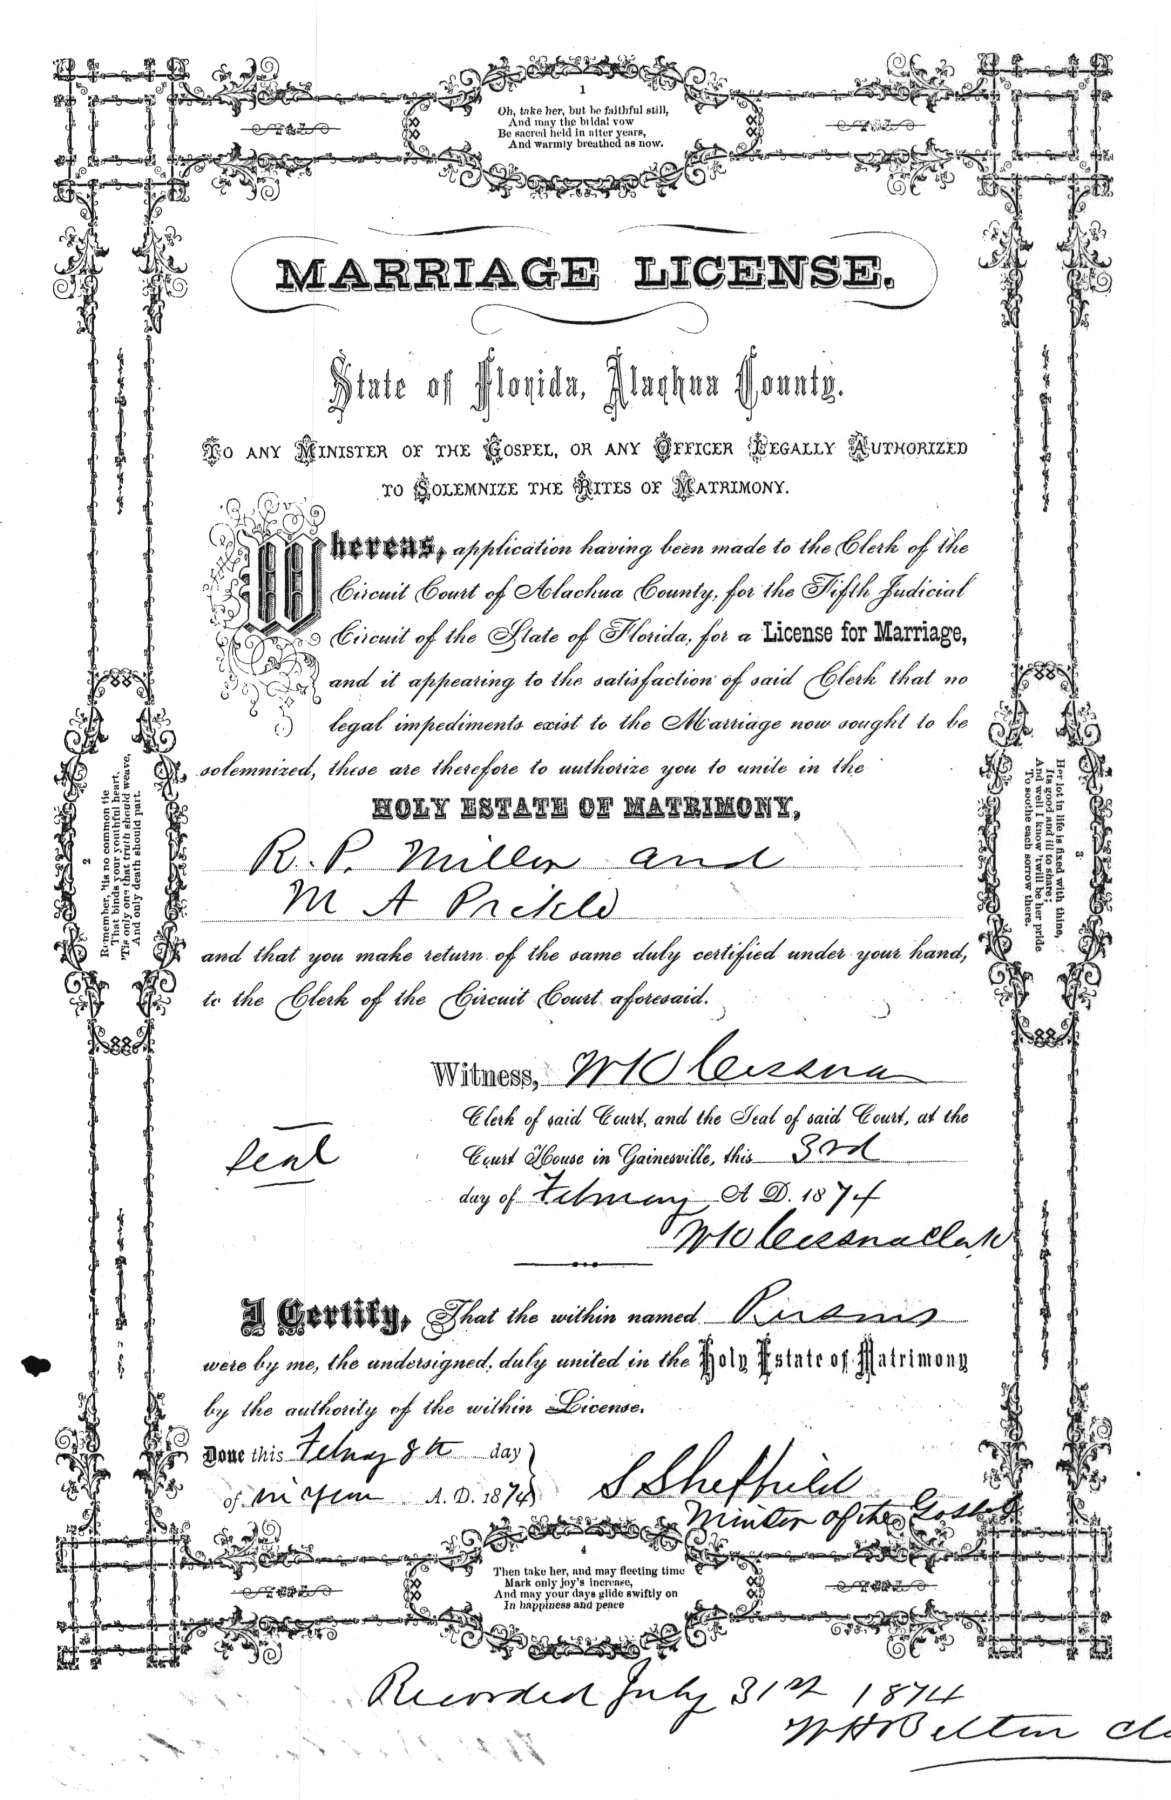 1
Oh, take her, but be faithful still,
And may the bridal vow
Be sacred held in after years,
And warmly breathed as now.
MARRIAGE LICENSE.
State of Florida, Alachua County.
TO ANY MINISTER OF THE GOSPEL, OR ANY OFFICER LEGALLY AUTHORIZED
TO SOLEMNIZE THE RITES OF MATRIMONY.
Whereas, application having been made to the Clerk of the
Circuit Court of Alachua County, for the Fifth Judicial
Circuit of the State of Florida, for a License for Marriage,
and it appearing to the satisfaction of said Clerk that no
legal impediments exist to the Marriage now sought to be
solemnized, these are therefore to authorize you to unite in the
HOLY ESTATE OF MATRIMONY,
R. P. Miller and
M A
and that you make return of the same duly certified under your hand,
to the Clerk of the Circuit Court aforesaid.
Witness, W K Cessna
Clerk of said Court, and the Seal of said Court, at the
Seal
Court House in Gainesville, this 3rd
day of February A D. 1874
W K Cessna Clerk
I Certify, That the within named Persons
were by me, the undersigned, duly united in the Holy Estate of Matrimony
by the authority of the within License.
Done this Febuay 8th day
of in year A. D. 1874
S Sheffield
Minister of the Gospel
2
Remember, 'tis no common tie
That binds your youthful heart,
'Tis only one that truth should weave,
And only death should part.
3
Her lot in life is fixed with thine,
Its good and ill to share;
And well I know 'twill be her pride
To soothe each sorrow there.
4
Then take her, and may fleeting time
Mark only joy's increase,
And may your days glide swiftly on
In happiness and peace
Recorded July 31st 1874
W H Belton